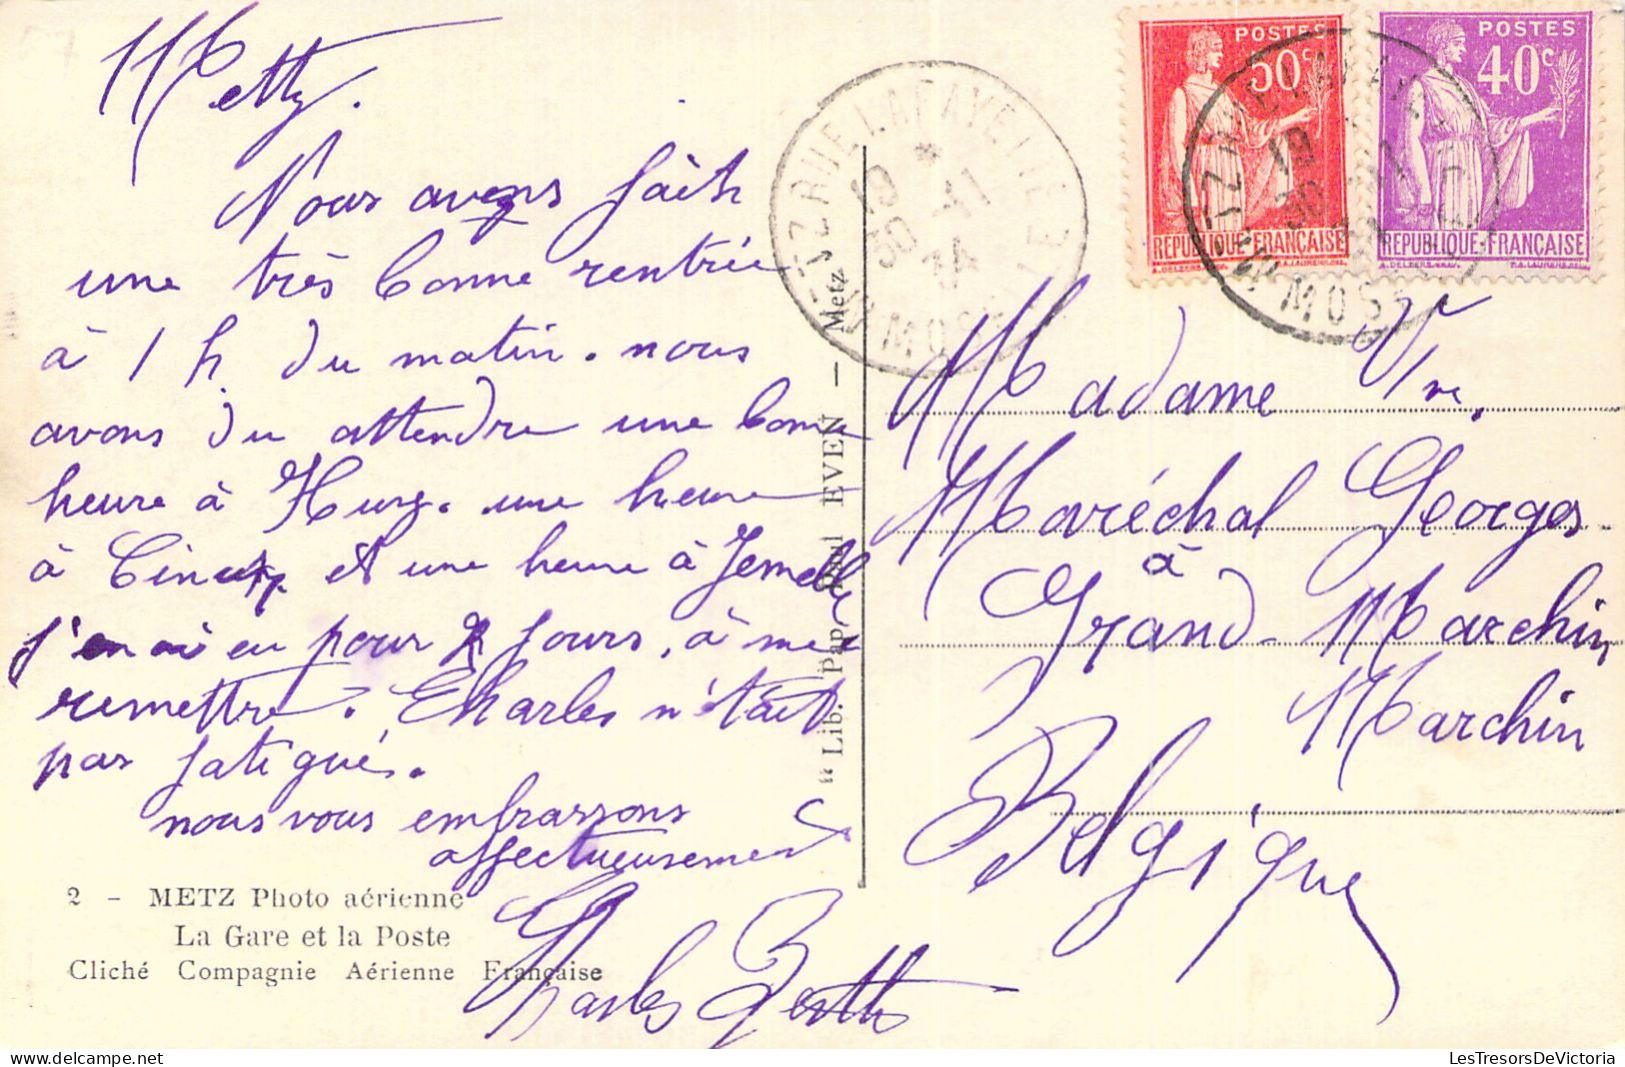 Metz.
Nous avons fait
une très bonne rentrée
à 1 h du matin. nous
avons du attendre une bonne
heure à Huy. une heure
à Ciney et une heure à Jemelle
j'en ai eu pour 2 jours, à me
remettre. Charles n'était
pas fatigué.
nous vous embrassons
affectueusement
Charles Berthe
2 - METZ Photo aérienne
La Gare et la Poste
Cliché Compagnie Aérienne Française
"Lib. Pap. Paul EVEN - Metz
RUE LAFAYETTE
19 -11
30 34
MOSELLE
POSTES
50c
REPUBLIQUE-FRANÇAISE
POSTES
40c
REPUBLIQUE-FRANÇAISE
Madame Vve.
Maréchal Georges
à
Grand-Marchin
Marchin
Belgique
LesTresorsDeVictoria